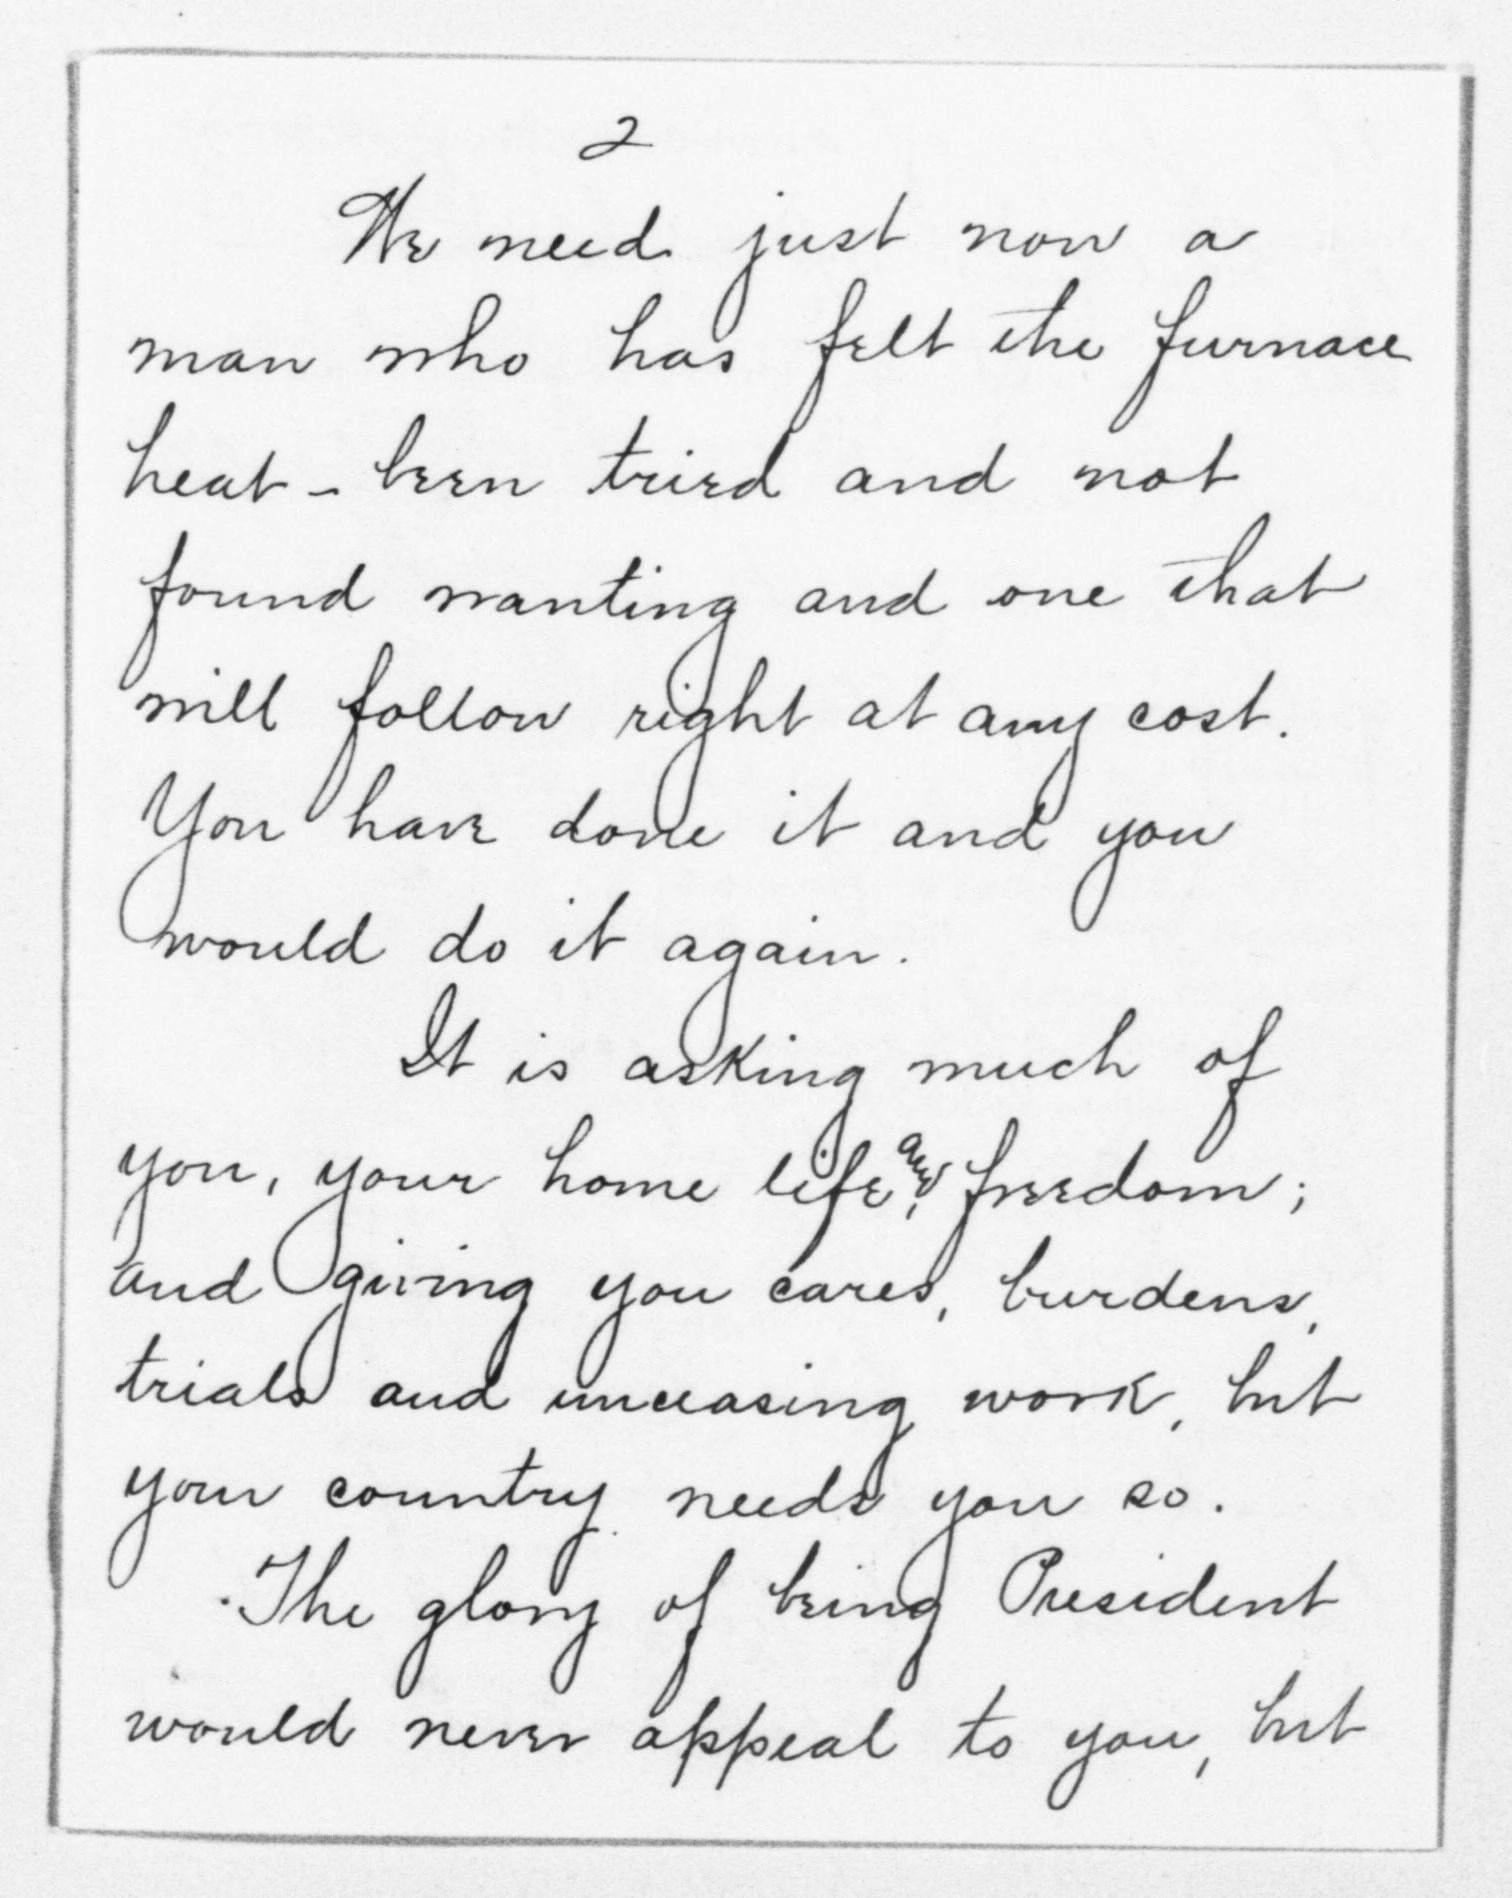 2
We need just now a
man who has felt the furnace
heat - been tried and not
found wanting and one that
will follow right at any cost.
You have done it and you
would do it again.
It is asking much of
you, your home life, and freedom;
and giving you cares, burdens,
trials and unceasing work, but
your country needs you so.
The glory of being President
would never appeal to you, but